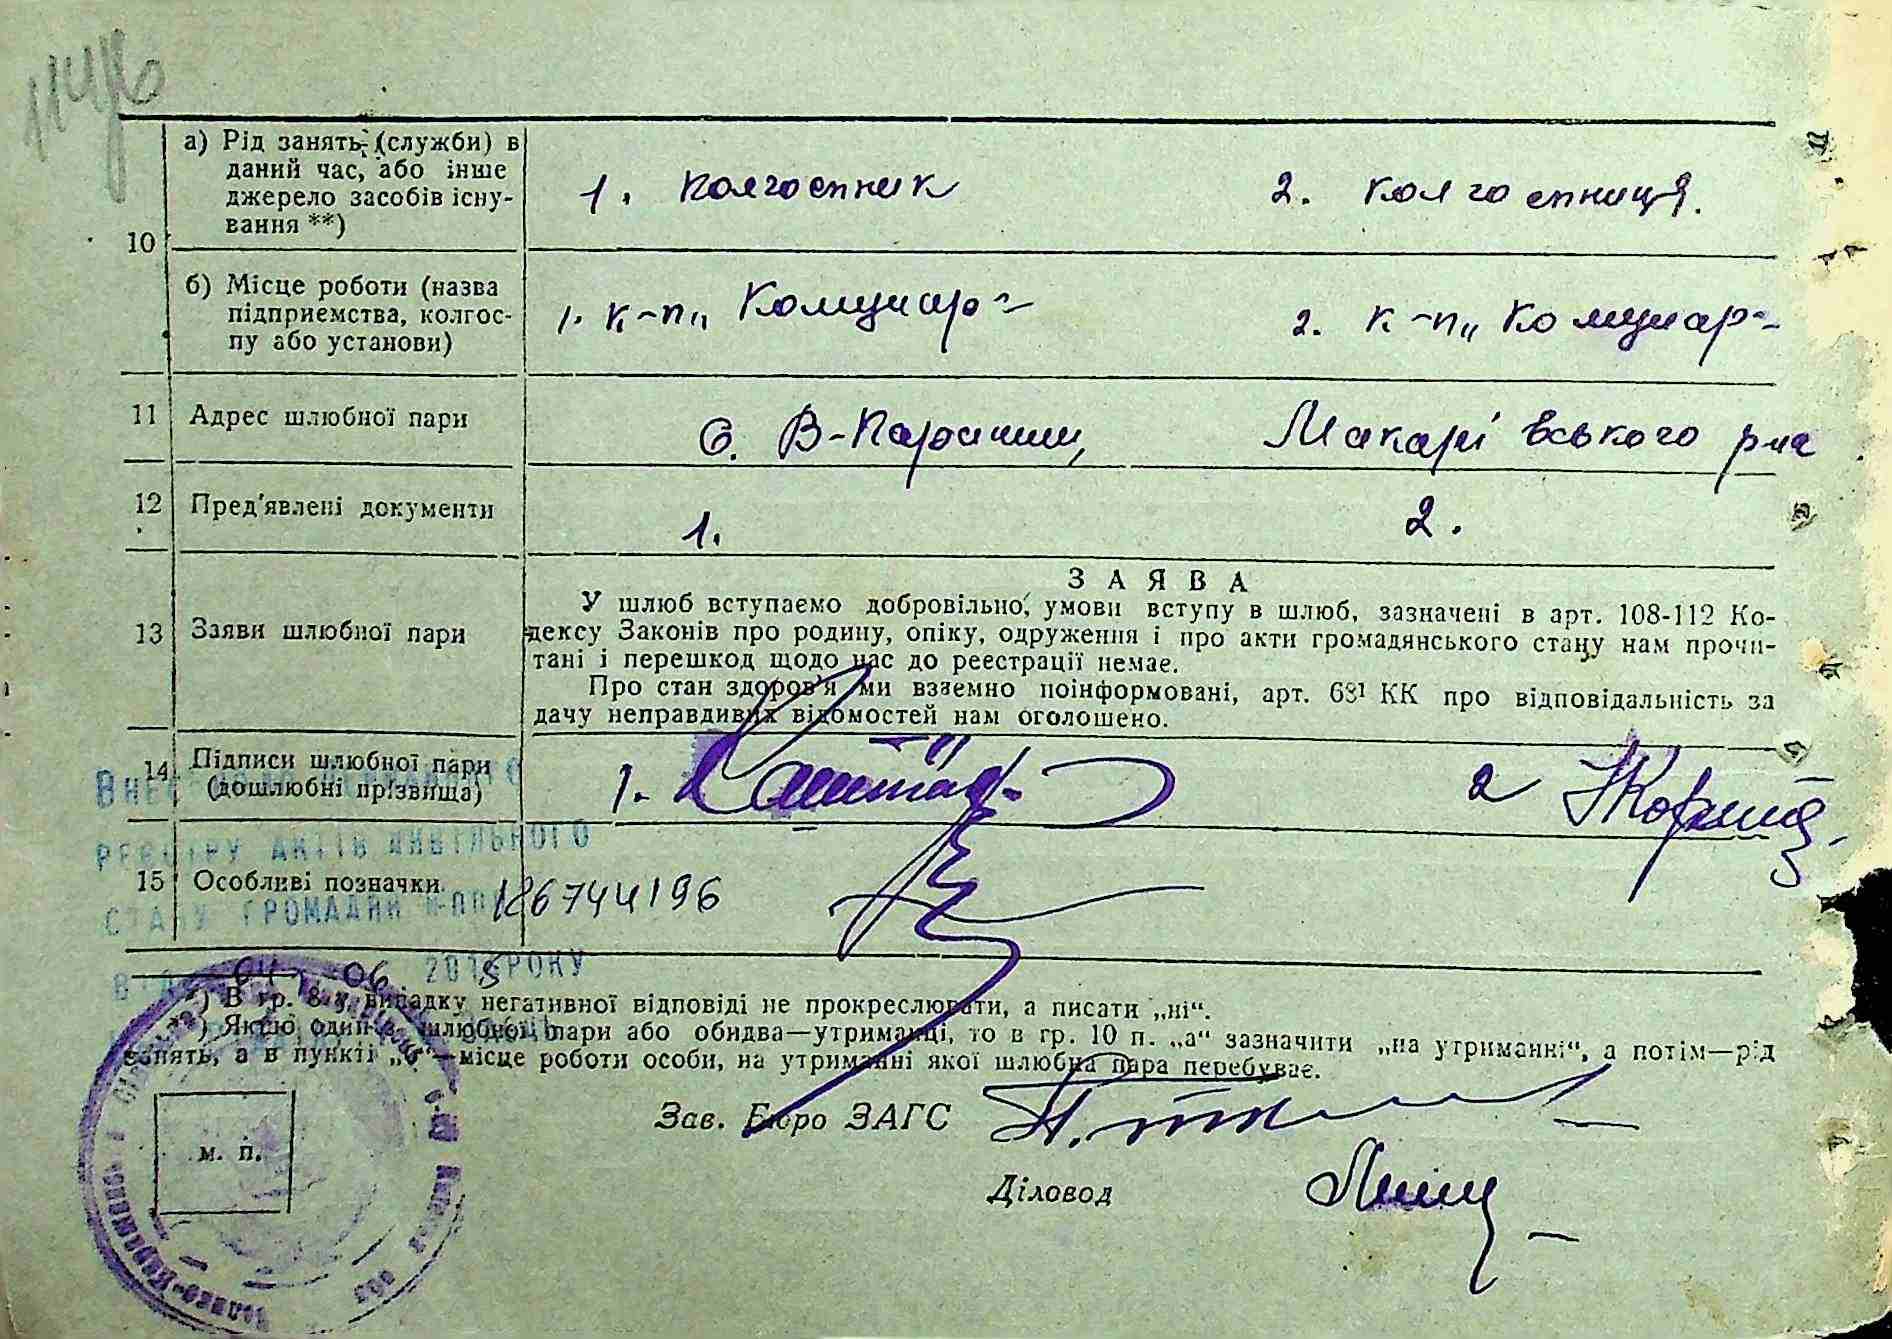 114/б
10
а) Рід занять (служби) в
даний час, або інше
джерело засобів існу-
вання **)
1. колгоспник
2. колгоспниця.
б) Місце роботи (назва
підприємства, колгос-
пу або установи)
1. к-п „Комунар"
2. к-п „Комунар"
11 Адрес шлюбної пари
с. В-Карашин, Макарівського р-на
12 Пред'явлені документи
1.
2.
13 Заяви шлюбної пари
ЗАЯВА
У шлюб вступаємо добровільно, умови вступу в шлюб, зазначені в арт. 108-112 Ко-
дексу Законів про родину, опіку, одруження і про акти громадянського стану нам прочи-
тані і перешкод щодо нас до реєстрації немає.
Про стан здоров'я ми взаємно поінформовані, арт. 68¹ КК про відповідальність за
дачу неправдивих відомостей нам оголошено.
14 Підписи шлюбної пари
(дошлюбні прізвища)
1.
2
РЕЄСТРУ АКТІВ ЦИВІЛЬНОГО
15 Особливі позначки
186744196
СТАНУ ГРОМАДЯН
04 06 2015 РОКУ
*) В гр. 8 у випадку негативної відповіді не прокреслювати, а писати „ні".
**) Якщо один з шлюбної пари або обидва—утриманці, то в гр. 10 п. „а" зазначити „на утриманні", а потім—рід
занять, а в пункті „б"—місце роботи особи, на утриманні якої шлюбна пара перебуває.
Зав. Бюро ЗАГС
м. п.
Діловод